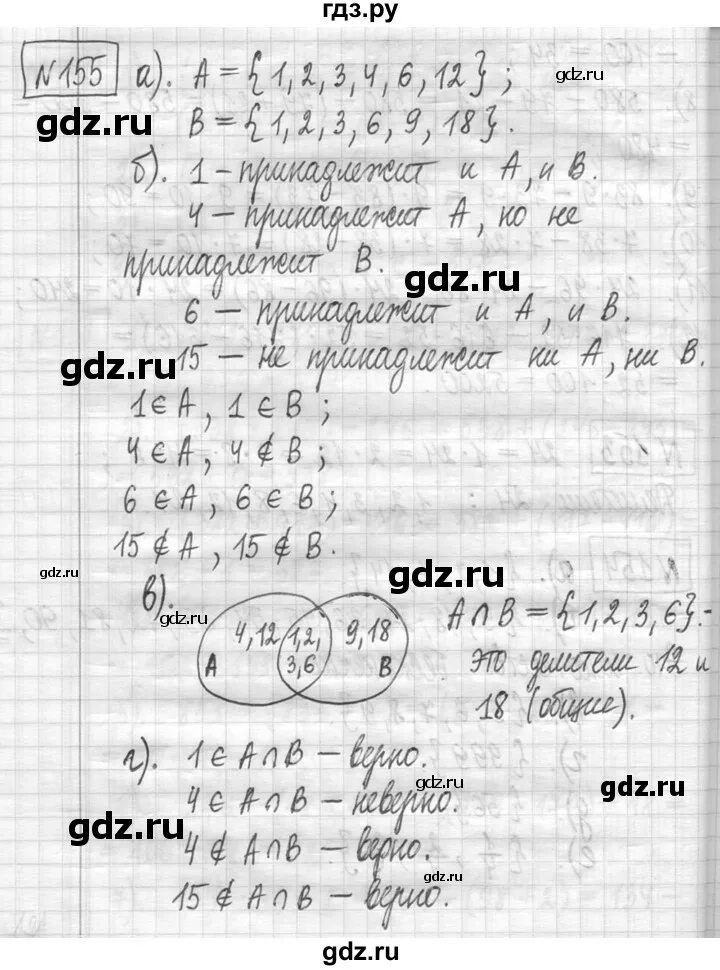 гдз.ру
№155 а). A = {1, 2, 3, 4, 6, 12};
gdz.ru
gdz.ru
B = {1, 2, 3, 6, 9, 18}.
б). 1 – принадлежит и A, и B.
4 – принадлежит A, но не
принадлежит B.
gdz.ru
6 – принадлежит и A, и B.
gdz.ru
15 – не принадлежит ни A, ни B.
1 ∈ A, 1 ∈ B;
4 ∈ A, 4 ∉ B;
gdz.ru
6 ∈ A, 6 ∈ B;
15 ∉ A, 15 ∉ B.
gdz.ru
gdz.ru
в).
gdz.ru
4, 12 1, 2, 9, 18
A 3, 6 B
A∩B = {1, 2, 3, 6}.–
это делители 12 и
18 (общие).
г). 1 ∈ A∩B – верно.
gdz.ru
4 ∈ A∩B – неверно.
gdz.ru
4 ∉ A∩B – верно.
15 ∉ A∩B – верно.
gdz.ru
gdz.ru